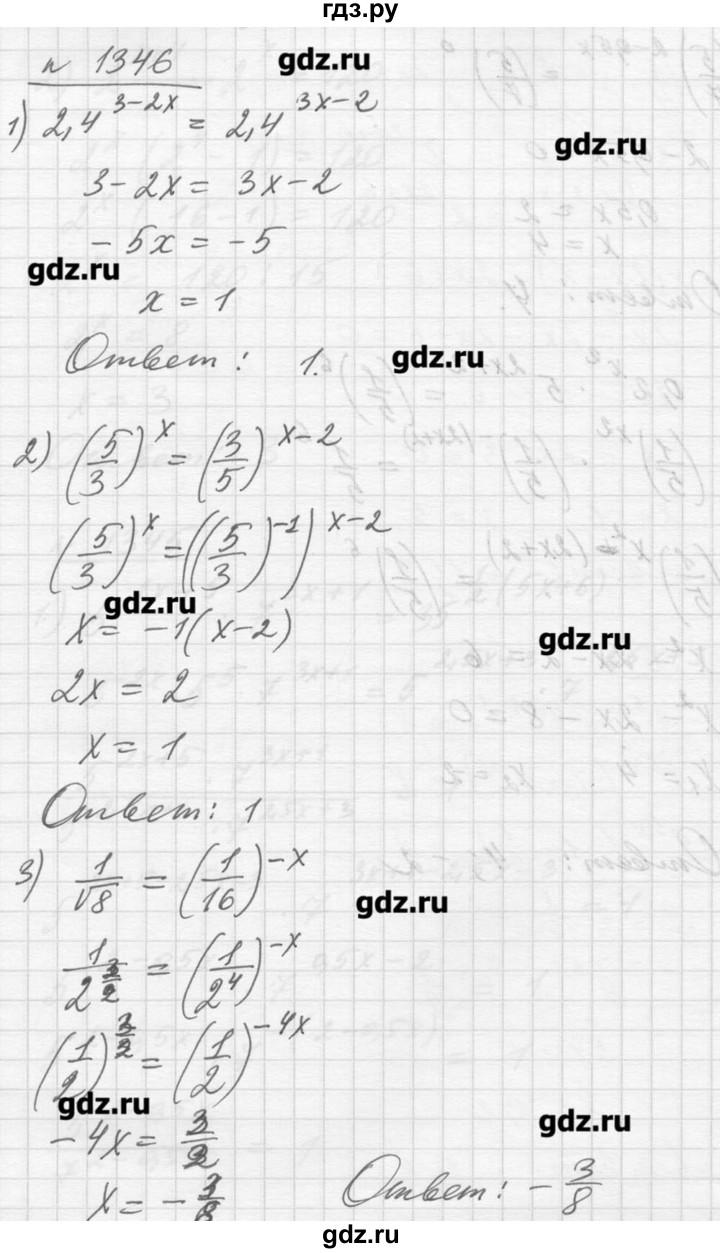 гдз.ру
n 1346
gdz.ru
1) 2,4^(3-2x) = 2,4^(3x-2)
gdz.ru
3-2x = 3x-2
-5x = -5
gdz.ru
x = 1
Ответ: 1.
gdz.ru
2) (5/3)^x = (3/5)^(x-2)
(5/3)^x = ((5/3)^(-1))^(x-2)
gdz.ru
x = -1(x-2)
gdz.ru
2x = 2
x = 1
Ответ: 1
3) 1/√8 = (1/16)^(-x)
gdz.ru
1/2^(3/2) = (1/2^4)^(-x)
(1/2)^(3/2) = (1/2)^(-4x)
gdz.ru
gdz.ru
-4x = 3/2
x = -3/8
Ответ: -3/8
gdz.ru